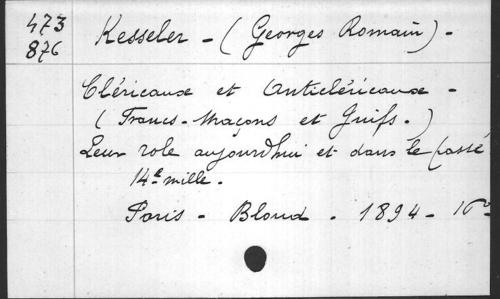 473
876
Kesseler - (Georges Romain) -
Cléricaux et Anticléricaux -
(Francs-Maçons et Juifs.)
Leur role aujourd'hui et dans le Passé
14e mille.
Paris - Bloud. 1894 - 16o